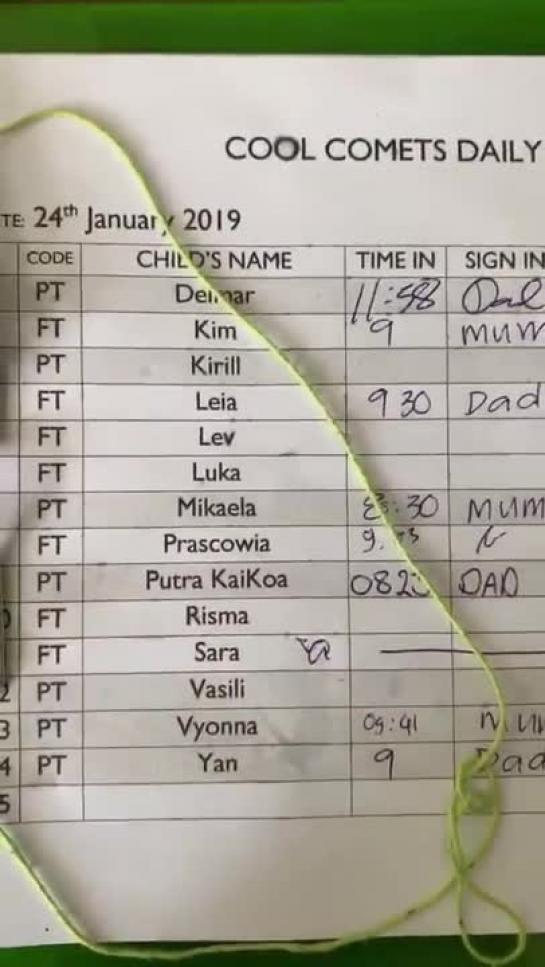 COOL COMETS DAILY
TE: 24th January 2019
CODE CHILD'S NAME TIME IN SIGN IN
PT Delmar 11:58
FT Kim 9 MUM
PT Kirill
FT Leia 9 30 Dad
FT Lev
FT Luka
PT Mikaela :30 MUM
FT Prascowia
PT Putra KaiKoa DAD
FT Risma
FT Sara
2 PT Vasili
3 PT Vyonna 09:41 MUM
4 PT Yan 9 Dad
5